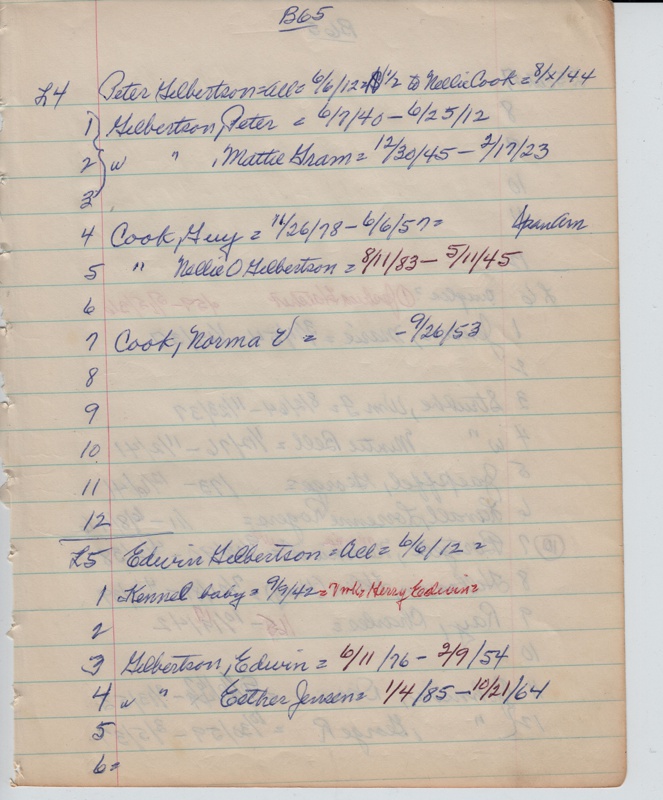 B65
L4 Peter Gilbertson = all = 6/6/12 = 1/2 to Nellie Cook = 8/x/44
1 Gilbertson, Peter = 6/7/40 - 6/25/12
2 w " , Mattie Gram = 12/30/45 - 2/17/23
3
4 Cook, Guy = 11/26/78 - 6/6/57 = SpanAm
5 " Nellie O Gilbertson = 8/11/83 - 5/11/45
6
7 Cook, Norma V = - 9/26/53
8
9
10
11
12
L5 Edwin Gilbertson = all = 6/6/12 =
1 Kennel baby = 9/9/42 = Henry Edwin =
2
3 Gilbertson, Edwin = 6/11/76 - 2/9/54
4 w " Esther Jensen = 1/4/85 - 10/21/64
5
6 =